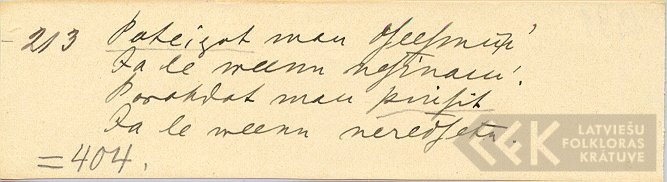 213 Pateizat man dseesmiņ'
Ja le weenu nesinami.
Parahdat man puisit
Ja le weenu neredsetu.
=404.
LATVIEŠU
FOLKLORAS
KRĀTUVE